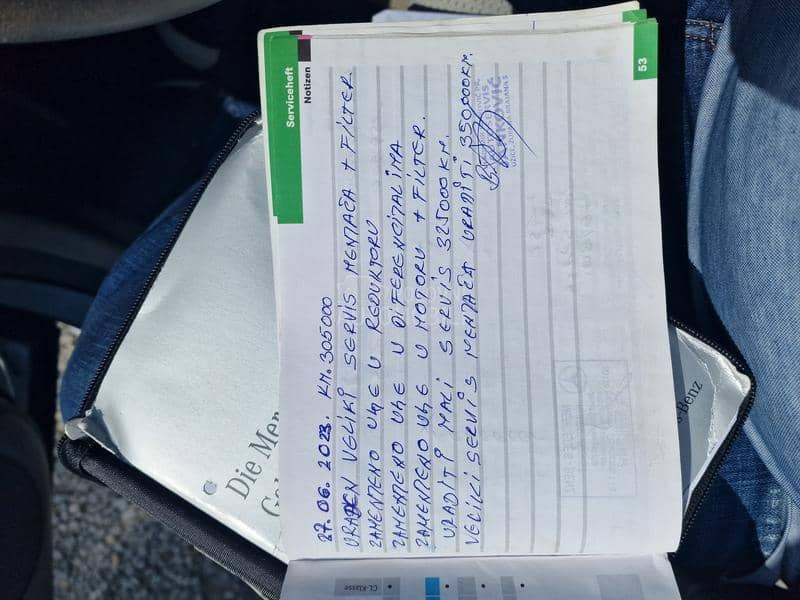 Serviceheft
Notizen
53
27.06.2023. KM.305000
URAĐEN VELIKI SERVIS MENJAČA + FILTER
ZAMENJENO ULJE U REDUKTORU
ZAMENJENO ULJE U DIFERENCIJALIMA
ZAMENJENO ULJE U MOTORU + FILTER.
URADITI MALI SERVIS 325000 KM.
VELIKI SERVIS MENJAČA URADITI 350000 KM.
SERVIS
Die Mer
s-Benz
CL-Klasse